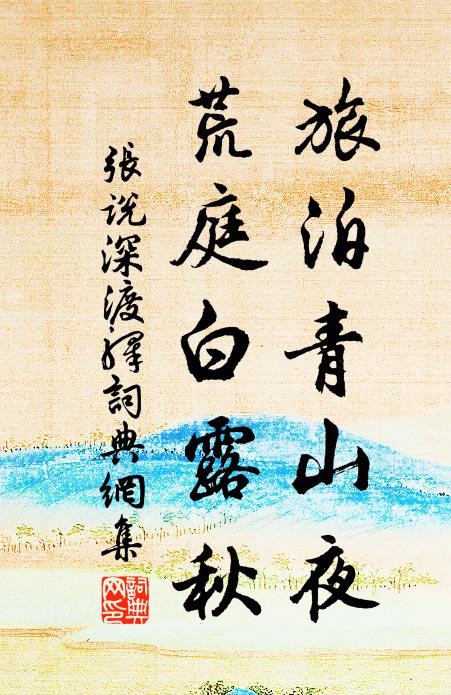 旅泊青山夜
荒庭白露秋
張说深渡驛詞典網集